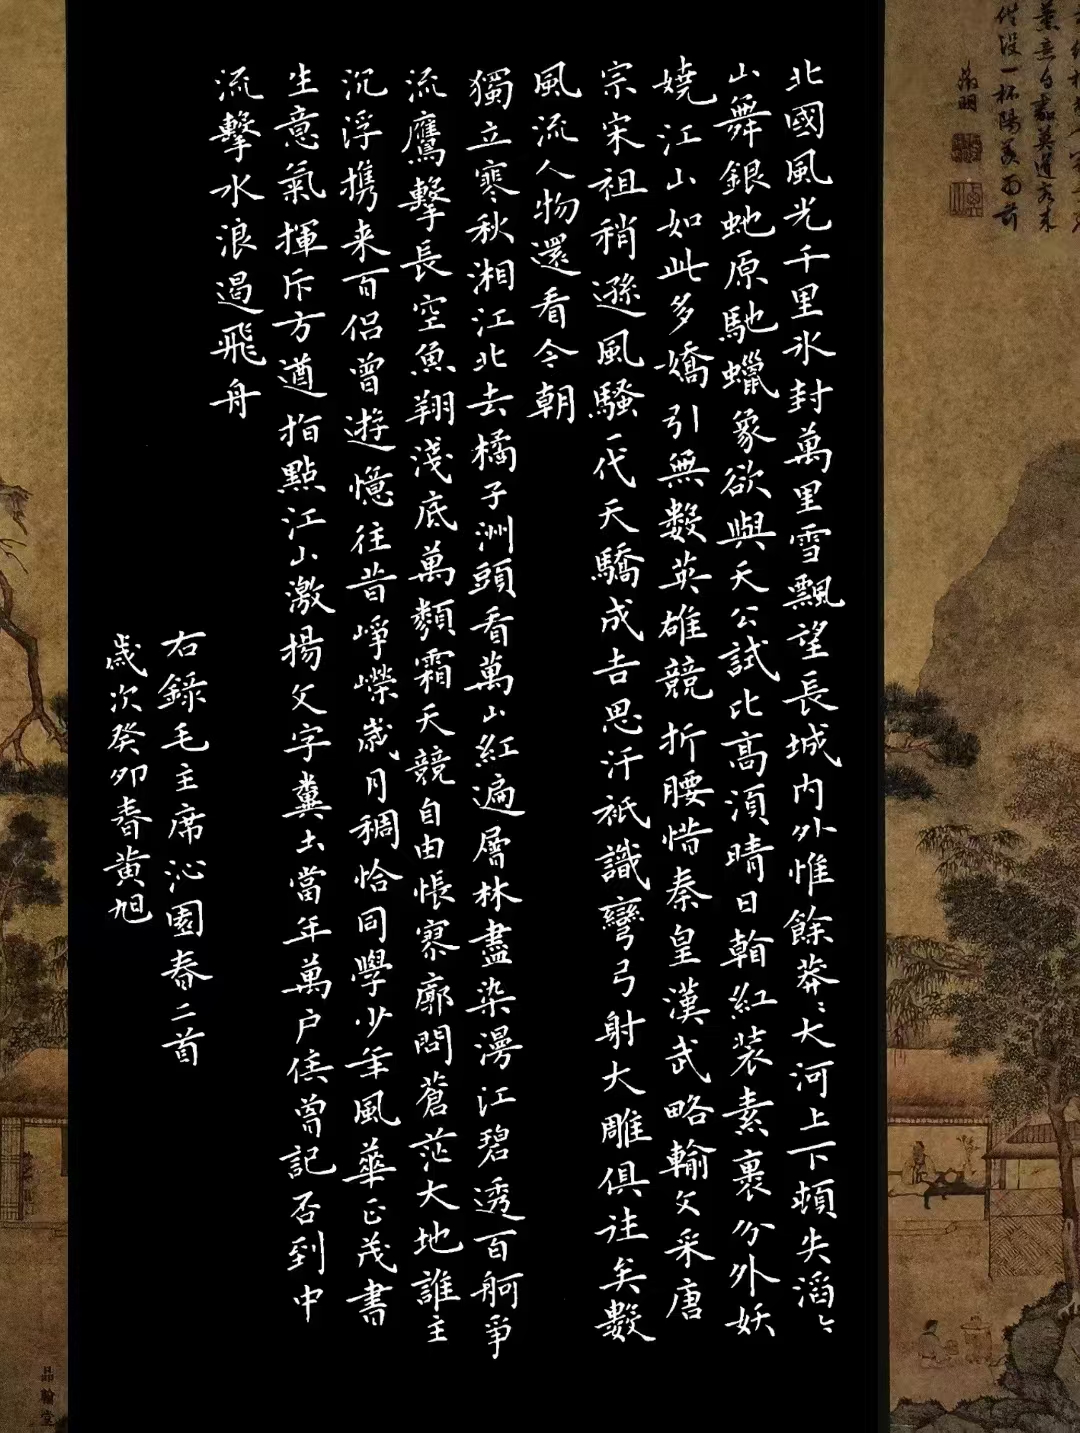 北國風光千里氷封萬里雪飄望長城內外惟餘莽〻大河上下頓失滔〻
山舞銀虵原馳蠟象欲與天公試比高湏晴日看紅装素裹分外妖
嬈江山如此多嬌引無數英雄競折腰惜秦皇漢武略輸文采唐
宗宋祖稍遜風騷一代天驕成吉思汗祇識彎弓射大雕俱往矣數
風流人物還看今朝
獨立寒秋湘江北去橘子洲頭看萬山紅遍層林盡染漫江碧透百舸爭
流鷹擊長空魚翔淺底萬類霜天競自由悵寥廓問蒼茫大地誰主
沉浮攜来百侣曾遊憶往昔崢嶸歲月稠恰同學少年風華正茂書
生意氣揮斥方遒指點江山激揚文字糞土當年萬户侯曾記否到中
流擊水浪遏飛舟
右錄毛主席沁園春二首
歲次癸卯春黄旭
徵明
晶翰堂